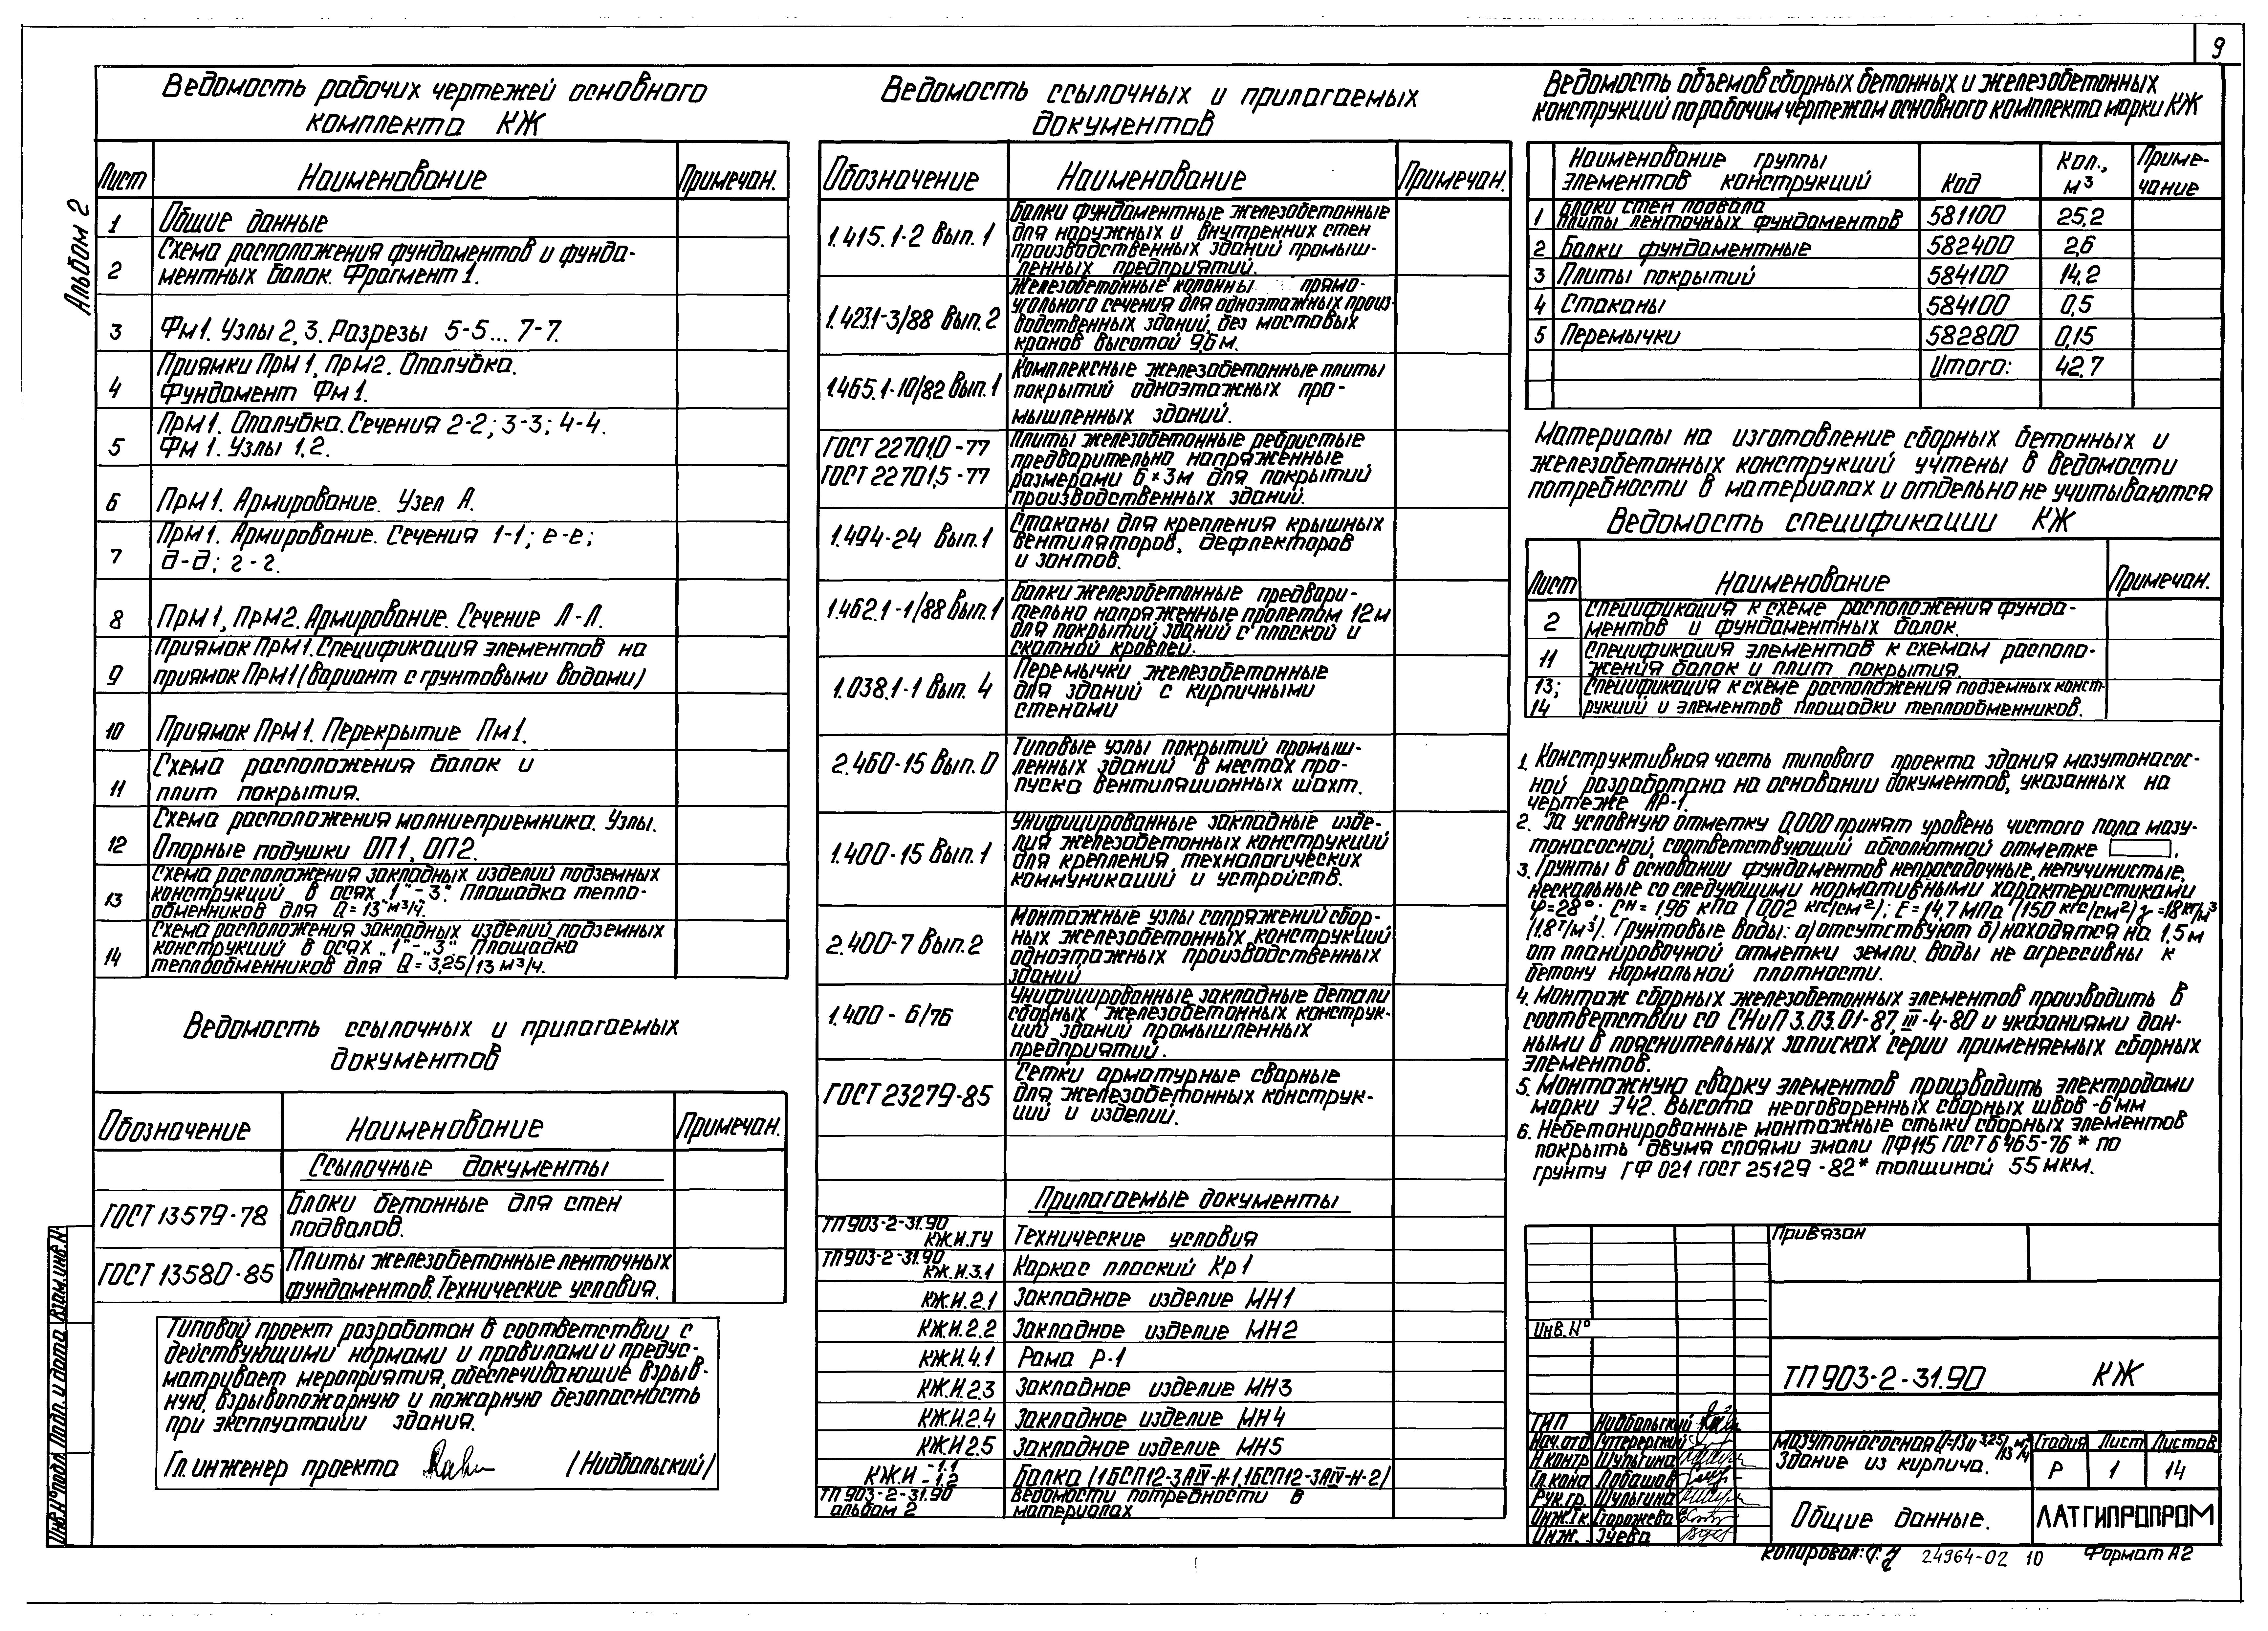 9
Альбом 2
Ведомость рабочих чертежей основного
комплекта КЖ
Лист Наименование Примечан.
1 Общие данные
Схема расположения фундаментов и фунда-
2 ментных балок. Фрагмент 1.
3 Фм1. Узлы 2, 3. Разрезы 5-5... 7-7.
Приямки Прм 1, Прм2. Опалубка.
4 Фундамент Фм 1.
Прм 1. Опалубка. Сечения 2-2; 3-3; 4-4.
5 Фм 1. Узлы 1,2.
6 Прм 1. Армирование. Узел А.
Прм 1. Армирование. Сечения 1-1; е-е;
7 д-д; г-г.
8 Прм 1, Прм2. Армирование. Сечение Л-Л.
Приямок Прм 1. Спецификация элементов на
9 приямок Прм 1 (вариант с грунтовыми водами)
10 Приямок Прм 1. Перекрытие Пм1.
Схема расположения балок и
11 плит покрытия.
Схема расположения молниеприемника. Узлы.
12 Опорные подушки ОП1, ОП2.
Схема расположения закладных изделий подземных
13 конструкций в осях „1"-„3". Площадка тепло-
обменников для Q = 13 м³/ч.
Схема расположения закладных изделий подземных
14 конструкций в осях „1"-„3". Площадка
теплообменников для Q = 3,25/13 м³/ч.
Ведомость ссылочных и прилагаемых
документов
Обозначение Наименование Примечан.
Ссылочные документы
ГОСТ 13579-78 Блоки бетонные для стен
подвалов.
ГОСТ 13580-85 Плиты железобетонные ленточных
фундаментов. Технические условия.
Типовой проект разработан в соответствии с
действующими нормами и правилами и предус-
матривает мероприятия, обеспечивающие взрыв-
ную, взрывопожарную и пожарную безопасность
при эксплуатации здания.
Гл. инженер проекта /Нидбальский/
Инв.N°подл. Подп. и дата Взам.инв.N°
Ведомость ссылочных и прилагаемых
документов
Обозначение Наименование Примечан.
1.415.1-2 Вып. 1 Балки фундаментные железобетонные
для наружных и внутренних стен
производственных зданий промыш-
ленных предприятий.
1.423.1-3/88 Вып. 2 Железобетонные колонны прямо-
угольного сечения для одноэтажных произ-
водственных зданий без мостовых
кранов высотой 9,6 м.
1.465.1-10/82 Вып. 1 Комплексные железобетонные плиты
покрытий одноэтажных про-
мышленных зданий.
ГОСТ 22701.0-77 Плиты железобетонные ребристые
предварительно напряженные
ГОСТ 22701.5-77 размерами 6×3м для покрытий
производственных зданий.
1.494-24 Вып. 1 Стаканы для крепления крышных
вентиляторов, дефлекторов
и зонтов.
1.462.1-1/88 Вып. 1 Балки железобетонные предвари-
тельно напряженные пролетом 12 м
для покрытий зданий с плоской и
скатной кровлей.
1.038.1-1 Вып. 4 Перемычки железобетонные
для зданий с кирпичными
стенами
2.460-15 Вып. 0 Типовые узлы покрытий промыш-
ленных зданий в местах про-
пуска вентиляционных шахт.
1.400-15 Вып. 1 Унифицированные закладные изде-
лия железобетонных конструкций
для крепления технологических
коммуникаций и устройств.
2.400-7 Вып. 2 Монтажные узлы сопряжений сбор-
ных железобетонных конструкций
одноэтажных производственных
зданий
1.400 - 6/76 Унифицированные закладные детали
сборных железобетонных конструк-
ций зданий промышленных
предприятий.
ГОСТ 23279-85 Сетки арматурные сварные
для железобетонных конструк-
ций и изделий.
Прилагаемые документы
ТП 903-2-31.90
КЖ.И.ТУ Технические условия
ТП 903-2-31.90
КЖ.И.3.1 Каркас плоский Кр 1
КЖ.И.2.1 Закладное изделие МН1
КЖ.И.2.2 Закладное изделие МН2
КЖ.И.4.1 Рама Р-1
КЖ.И.2.3 Закладное изделие МН3
КЖ.И.2.4 Закладное изделие МН4
КЖ.И.2.5 Закладное изделие МН5
КЖ.И -1.1 -1.2 Балка (1БСП12-3АIV-Н-1, 1БСП12-3АIV-Н-2)
ТП 903-2-31.90 Ведомости потребности в
альбом 2 материалах
Ведомость объемов сборных бетонных и железобетонных
конструкций по рабочим чертежам основного комплекта марки КЖ
Наименование группы Кол., Приме-
элементов конструкций Код м³ чание
1 Блоки стен подвала
плиты ленточных фундаментов 581100 25,2
2 Балки фундаментные 582400 2,6
3 Плиты покрытий 584100 14,2
4 Стаканы 584100 0,5
5 Перемычки 582800 0,15
Итого: 42,7
Материалы на изготовление сборных бетонных и
железобетонных конструкций учтены в ведомости
потребности в материалах и отдельно не учитываются
Ведомость спецификации КЖ
Лист Наименование Примечан.
2 Спецификация к схеме расположения фунда-
ментов и фундаментных балок.
11 Спецификация элементов к схемам располо-
жения балок и плит покрытия.
13; Спецификация к схеме расположения подземных конст-
14 рукций и элементов площадки теплообменников.
1. Конструктивная часть типового проекта здания мазутонасос-
ной разработана на основании документов, указанных на
чертеже АР-1.
2. За условную отметку 0.000 принят уровень чистого пола мазу-
тонасосной, соответствующий абсолютной отметке
3. Грунты в основании фундаментов непросадочные, непучинистые,
нескальные со следующими нормативными характеристиками
φ=28°; Сн = 1,96 кПа (0,02 кгс/см²); Е=14,7 МПа (150 кгс/см²) γ=18 кг/м³
(1.8 т/м³). Грунтовые воды: а) отсутствуют б) находятся на 1,5 м
от планировочной отметки земли. Воды не агрессивны к
бетону нормальной плотности.
4. Монтаж сборных железобетонных элементов производить в
соответствии со СНиП 3.03.01-87, III-4-80 и указаниями дан-
ными в пояснительных записках серии применяемых сборных
элементов.
5. Монтажную сварку элементов производить электродами
марки Э42. Высота неоговоренных сборных швов -6 мм
6. Небетонированные монтажные стыки сборных элементов
покрыть двумя слоями эмали ПФ115 ГОСТ 6465-76* по
грунту ГФ 021 ГОСТ 25129-82* толщиной 55 мкм.
Привязан
Инв. N°
ТП 903-2-31.90 КЖ
ГИП Нидбальский
Нач.отд Гуттерергский
Н.контр Шульгина
Гл.конст Лобашов
Рук.гр. Шульгина
Инж.Iк. Сторожева
Инж. Зуева
Мазутонасосная Q=13 и 3,25/13 м³/ч
Здание из кирпича.
Стадия Лист Листов
Р 1 14
Общие данные.
ЛАТГИПРОПРОМ
Копировал: 24964-02 10 Формат А2